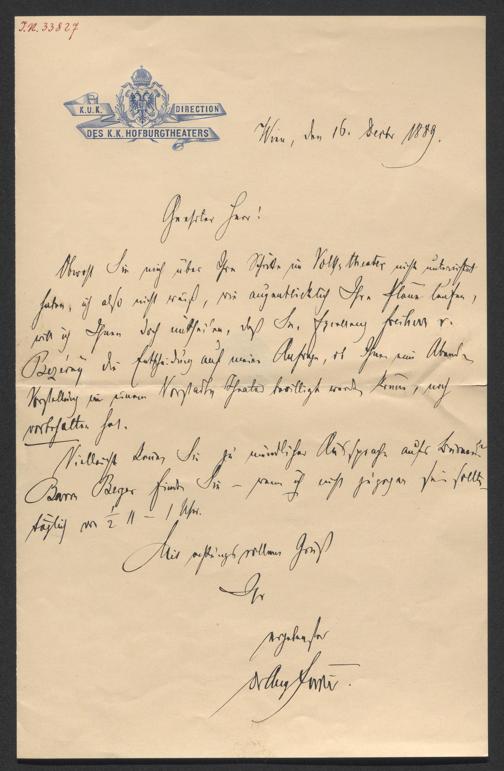 J.N. 33827
K.U.K. DIRECTION
DES K.K. HOFBURGTHEATERS
Wien, den 16. Decbr 1889.
Geehrter Herr!
Obwohl Sie mich über Ihre Schritte im Volkstheater nicht unterrichtet
haben, ich also nicht weiß, wie augenblicklich Ihre Pläne laufen,
will ich Ihnen doch mittheilen, daß Se. Excellenz Freiherr v.
Bezecny die Entscheidung auf meine Anfrage, ob Ihnen eine Abend-
Vorstellung in einem Vorstadt-Theater bewilligt werden könne, noch
vorbehalten hat.
Vielleicht kommen Sie zu mündlicher Aussprache aufs Bureau.
Baron Berger finden Sie – wenn ich nicht zugegen sein sollte –
täglich von ½ 11 – 1 Uhr.
Mit achtungsvollem Gruß
Ihr
ergebenster
Dr Aug Förster.